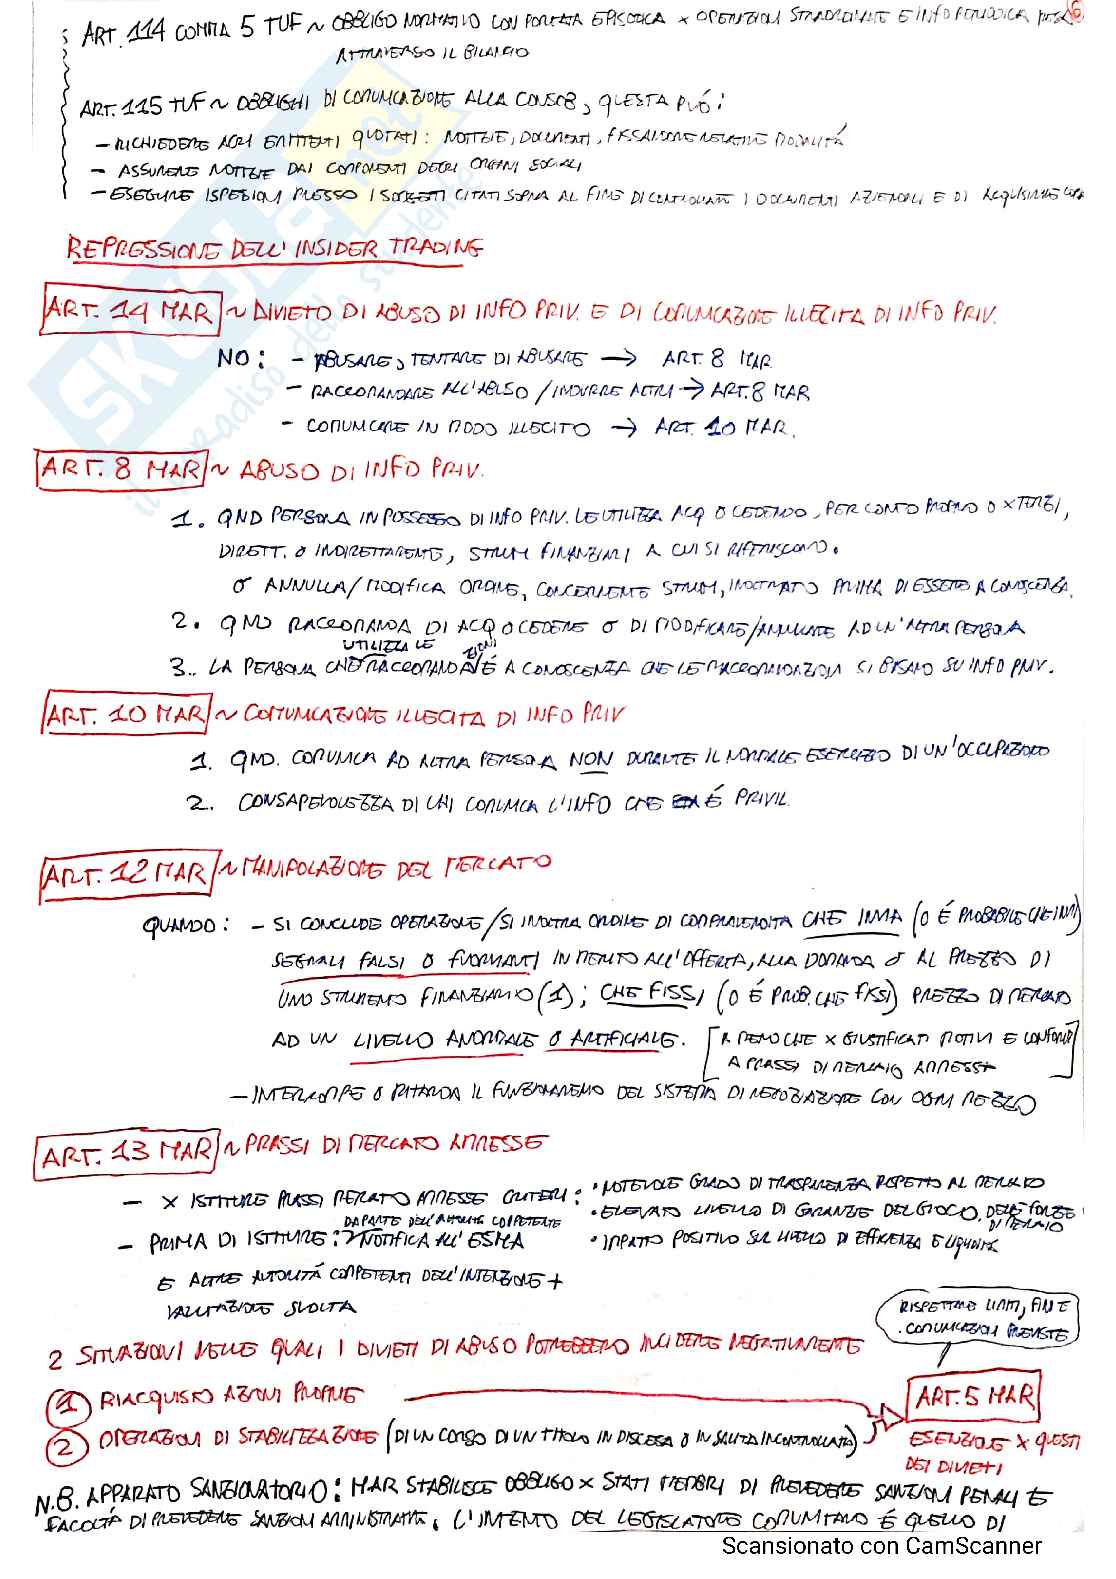 ART. 114 COMMA 5 TUF ~ OBBLIGO NORMATIVO CON PORTATA EPISODICA x OPERAZIONI STRAORDINARIE E INFO PERIODICA
ATTRAVERSO IL BILANCIO
ART. 115 TUF ~ OBBLIGHI DI COMUNICAZIONE ALLA CONSOB, QUESTA PUÓ:
- RICHIEDERE AGLI EMITTENTI QUOTATI: NOTIZIE, DOCUMENTI, FISSANDONE RELATIVE MODALITÁ
- ASSUMERE NOTIZIE DAI COMPONENTI DEGLI ORGANI SOCIALI
- ESEGUIRE ISPEZIONI PRESSO I SOGGETTI CITATI SOPRA AL FINE DI CONTROLLARE I DOCUMENTI AZIENDALI E DI ACQUISIRNE COPIA
REPRESSIONE DELL'INSIDER TRADING
ART. 14 MAR ~ DIVIETO DI ABUSO DI INFO PRIV. E DI COMUNICAZIONE ILLECITA DI INFO PRIV.
NO: - ABUSARE, TENTARE DI ABUSARE → ART. 8 MAR
- RACCOMANDARE ALL'ABUSO / INDURRE ALTRI → ART. 8 MAR
- COMUNICARE IN MODO ILLECITO → ART. 10 MAR.
ART. 8 MAR ~ ABUSO DI INFO PRIV.
1. QND PERSONA IN POSSESSO DI INFO PRIV. LE UTILIZZA ACQ O CEDENDO, PER CONTO PROPRIO O x TERZI,
DIRETT. O INDIRETTAMENTE, STRUM FINANZIARI A CUI SI RIFERISCONO.
O ANNULLA/MODIFICA ORDINE, CONCERNENTE STRUM, INOLTRATO PRIMA DI ESSERE A CONOSCENZA.
2. QND RACCOMANDA DI ACQ O CEDERE O DI MODIFICARE/ANNULLARE AD UN'ALTRA PERSONA
3. LA PERSONA CHE UTILIZZA LE RACCOMANDAZIONI É A CONOSCENZA CHE LE RACCOMANDAZIONI SI BASANO SU INFO PRIV.
ART. 10 MAR ~ COMUNICAZIONE ILLECITA DI INFO PRIV
1. QND. COMUNICA AD ALTRA PERSONA NON DURANTE IL NORMALE ESERCIZIO DI UN'OCCUPAZIONE
2. CONSAPEVOLEZZA DI CHI COMUNICA L'INFO CHE É PRIVIL.
ART. 12 MAR ~ MANIPOLAZIONE DEL MERCATO
QUANDO: - SI CONCLUDE OPERAZIONE/SI INOLTRA ORDINE DI COMPRAVENDITA CHE INVIA (O É PROBABILE CHE INVII)
SEGNALI FALSI O FUORVIANTI IN MERITO ALL'OFFERTA, ALLA DOMANDA O AL PREZZO DI
UNO STRUMENTO FINANZIARIO (1); CHE FISSI (O É PROB. CHE FISSI) PREZZO DI MERCATO
AD UN LIVELLO ANORMALE O ARTIFICIALE. [A MENO CHE x GIUSTIFICATI MOTIVI E CONFORME
A PRASSI DI MERCATO AMMESSA]
- INTERROMPE O RITARDA IL FUNZIONAMENTO DEL SISTEMA DI NEGOZIAZIONE CON OGNI MEZZO
ART. 13 MAR ~ PRASSI DI MERCATO AMMESSE
- x ISTITUIRE PRASSI MERCATO AMMESSE CRITERI: • NOTEVOLE GRADO DI TRASPARENZA RISPETTO AL MERCATO
• ELEVATO LIVELLO DI GARANZIE DEL GIOCO DELLE FORZE DI MERCATO
• IMPATTO POSITIVO SUL LIVELLO DI EFFICIENZA E LIQUIDITÁ
- PRIMA DI ISTITUIRE: NOTIFICA DA PARTE DELL'AUTORITÁ COMPETENTE ALL'ESMA
E ALTRE AUTORITÁ COMPETENTI DELL'INTENZIONE +
VALUTAZIONE SVOLTA
RISPETTANO LIMITI, FINI E
COMUNICAZIONI PREVISTE
2 SITUAZIONI NELLE QUALI I DIVIETI DI ABUSO POTREBBERO INCIDERE NEGATIVAMENTE
1 RIACQUISTO AZIONI PROPRIE
ART. 5 MAR
2 OPERAZIONI DI STABILIZZAZIONE (DI UN CORSO DI UN TITOLO IN DISCESA O IN SALITA INCONTROLLATA)
ESENZIONE x QUESTI
DEI DIVIETI
N.B. APPARATO SANZIONATORIO: MAR STABILISCE OBBLIGO x STATI MEMBRI DI PREVEDERE SANZIONI PENALI E
FACOLTÁ DI PREVEDERE SANZIONI AMMINISTRATIVE. L'INTENTO DEL LEGISLATORE COMUNITARIO É QUELLO DI
Scansionato con CamScanner
SKUOLA.net
il paradiso dello studente